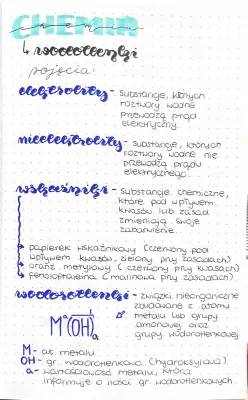 CHEMIA
chemia
↳ wodorotlenki
pojęcia:
elektrolity - substancje, których
roztwory wodne
przewodzą prąd
elektryczny.
nieelektrolity - substancje, których
roztwory wodne nie
przewodzą prądu
elektrycznego.
wskaźniki - substancje chemiczne,
które pod wpływem
kwasów lub zasad
zmieniają swoje
zabarwienie.
→ papierek wskaźnikowy (czerwony pod
wpływem kwasów, zielony przy zasadach)
→ oranż metylowy (czerwony przy kwasach)
→ fenoloftaleina (malinowa przy zasadach)
wodorotlenki - związki nieorganiczne
zbudowane z atomu
metalu lub grupy
amonowej oraz
grupy wodorotlenowej
M(OH)a
M - at. metalu
OH - gr. wodorotlenowa (hydroksylowa)
a - wartościowość metalu, która
informuje o ilości gr. wodorotlenowych